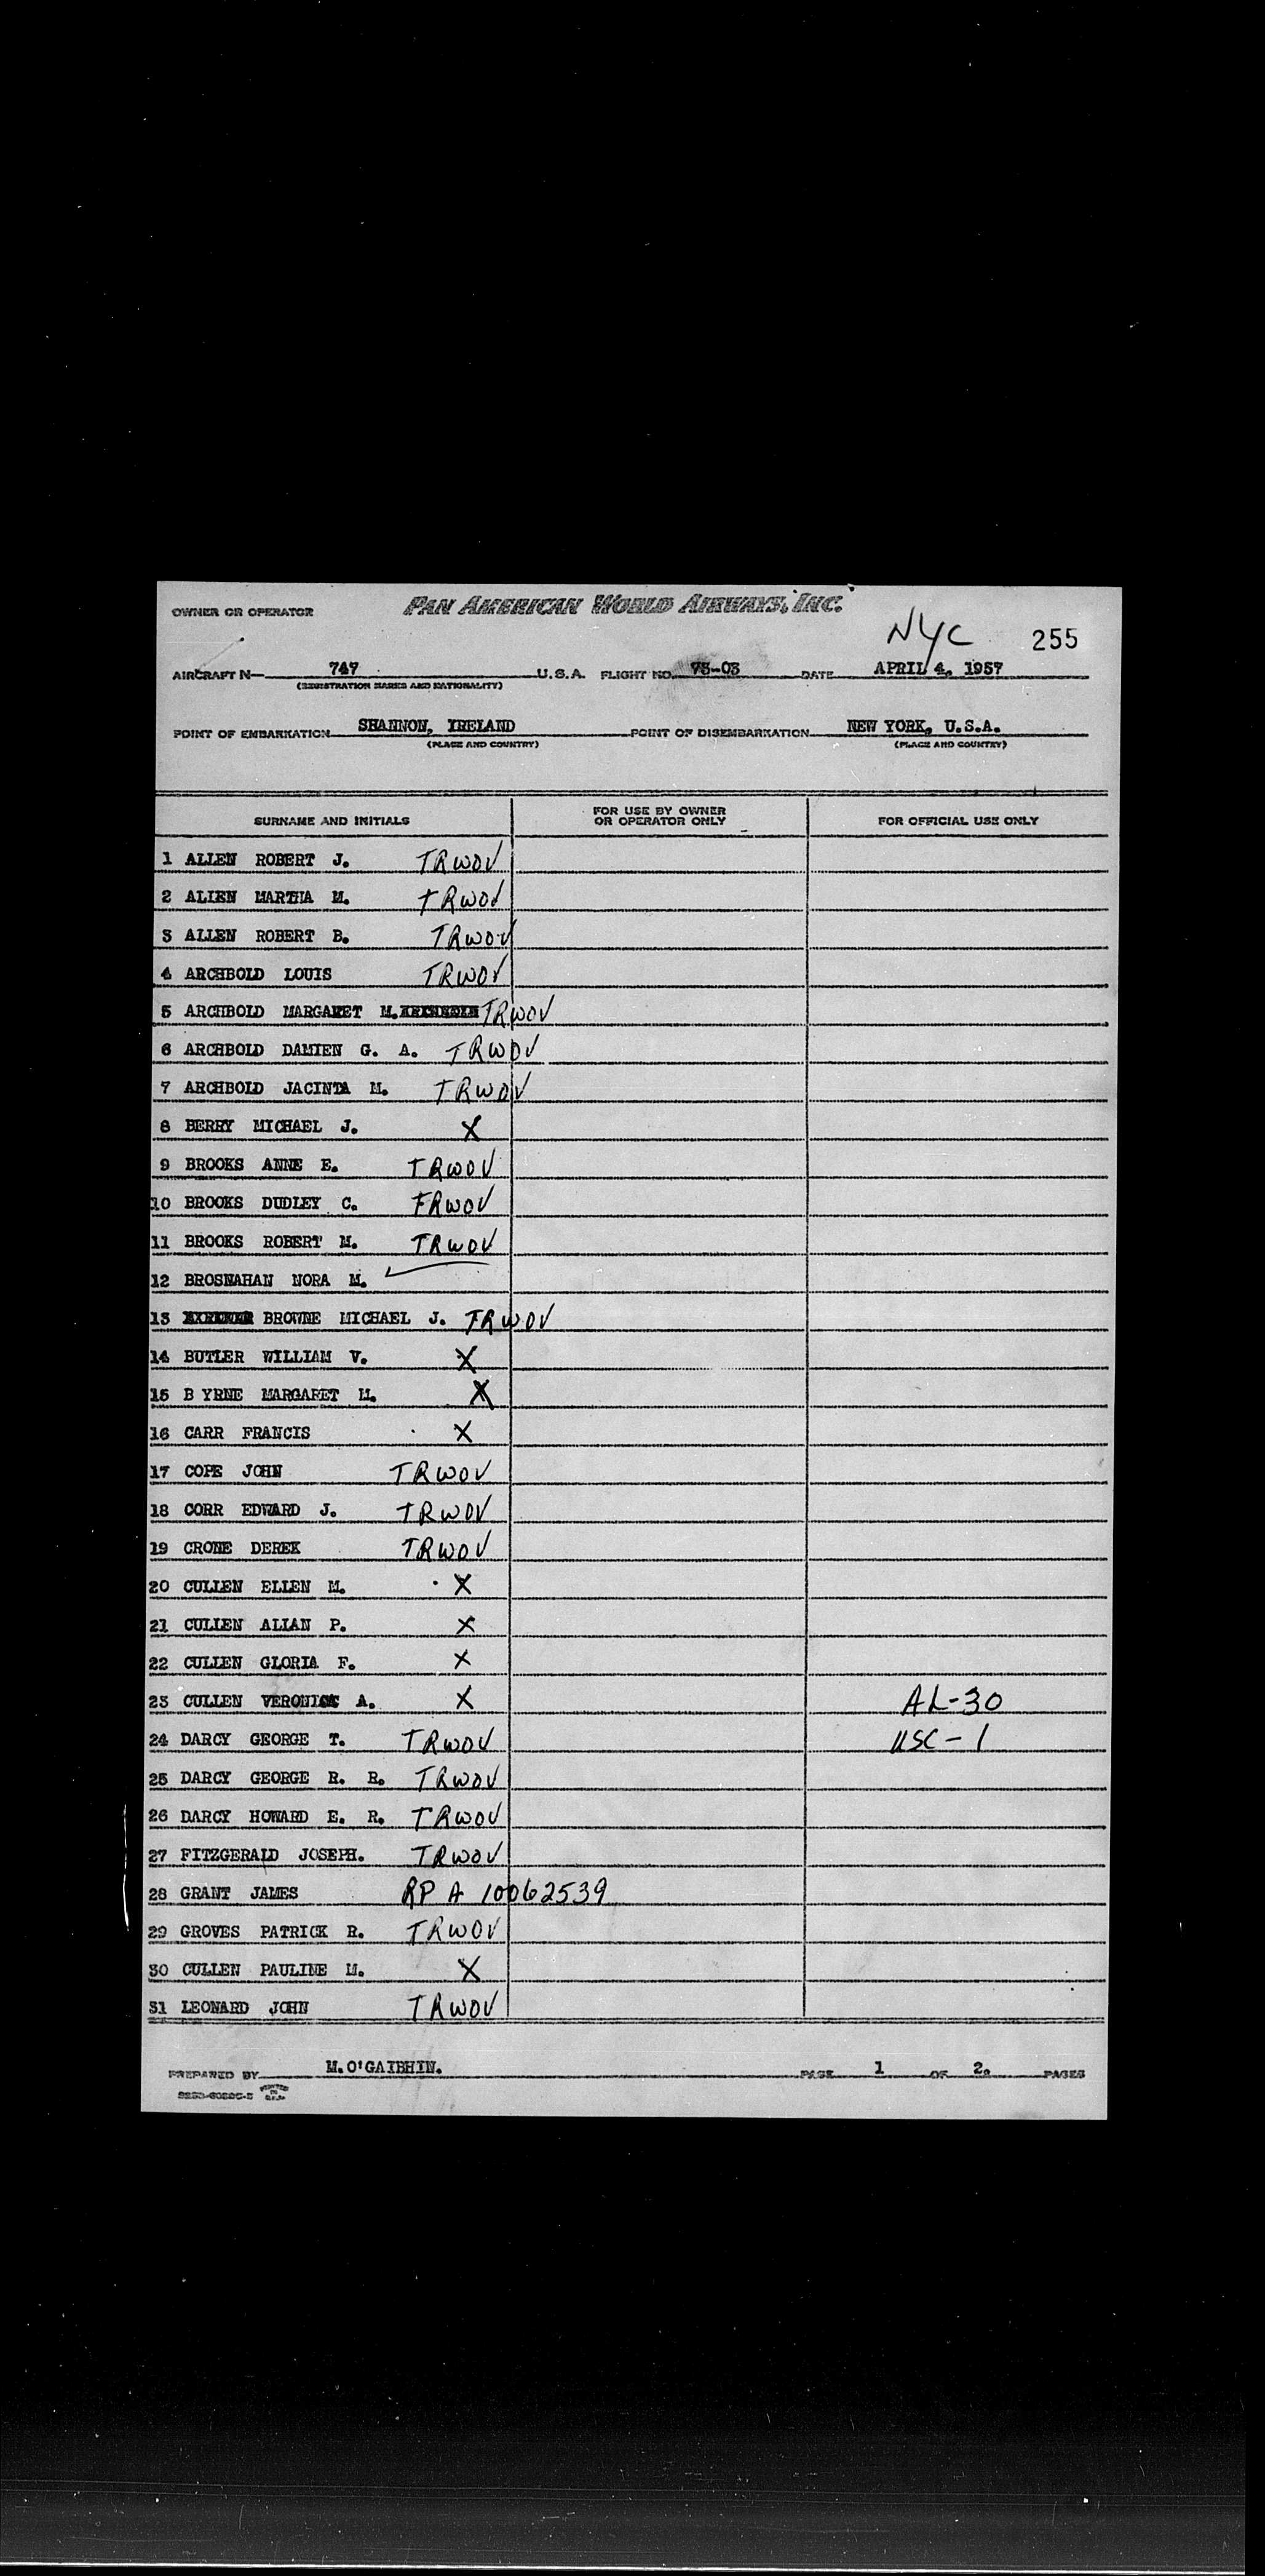 OWNER OR OPERATOR PAN AMERICAN WORLD AIRWAYS, INC.
NYC 255
AIRCRAFT N— 747 U.S.A. FLIGHT NO. 73-03 DATE APRIL 4, 1957
(REGISTRATION MARKS AND NATIONALITY)
POINT OF EMBARKATION SHANNON, IRELAND POINT OF DISEMBARKATION NEW YORK, U.S.A.
(PLACE AND COUNTRY) (PLACE AND COUNTRY)
SURNAME AND INITIALS FOR USE BY OWNER OR OPERATOR ONLY FOR OFFICIAL USE ONLY
1 ALLEN ROBERT J. TRWOV
2 ALLEN MARTHA M. TRWOV
3 ALLEN ROBERT B. TRWOV
4 ARCHBOLD LOUIS TRWOV
5 ARCHBOLD MARGARET M. TRWOV
6 ARCHBOLD DAMIEN G. A. TRWOV
7 ARCHBOLD JACINTA M. TRWOV
8 BERRY MICHAEL J. X
9 BROOKS ANNE E. TRWOV
10 BROOKS DUDLEY C. TRWOV
11 BROOKS ROBERT M. TRWOV
12 BROSNAHAN NORA M.
13 BROWNE MICHAEL J. TRWOV
14 BUTLER WILLIAM V. X
15 B YRNE MARGARET M. X
16 CARR FRANCIS X
17 COPE JOHN TRWOV
18 CORR EDWARD J. TRWOV
19 CRONE DEREK TRWOV
20 CULLEN ELLEN M. X
21 CULLEN ALLAN P. X
22 CULLEN GLORIA F. X
23 CULLEN VERONICA A. X AL-30
24 DARCY GEORGE T. TRWOV USC-1
25 DARCY GEORGE R. R. TRWOV
26 DARCY HOWARD E. R. TRWOV
27 FITZGERALD JOSEPH. TRWOV
28 GRANT JAMES RP A 10062539
29 GROVES PATRICK R. TRWOV
30 CULLEN PAULINE M. X
31 LEONARD JOHN TRWOV
PREPARED BY M. O'GAIBHIN. PAGE 1 OF 2. PAGES